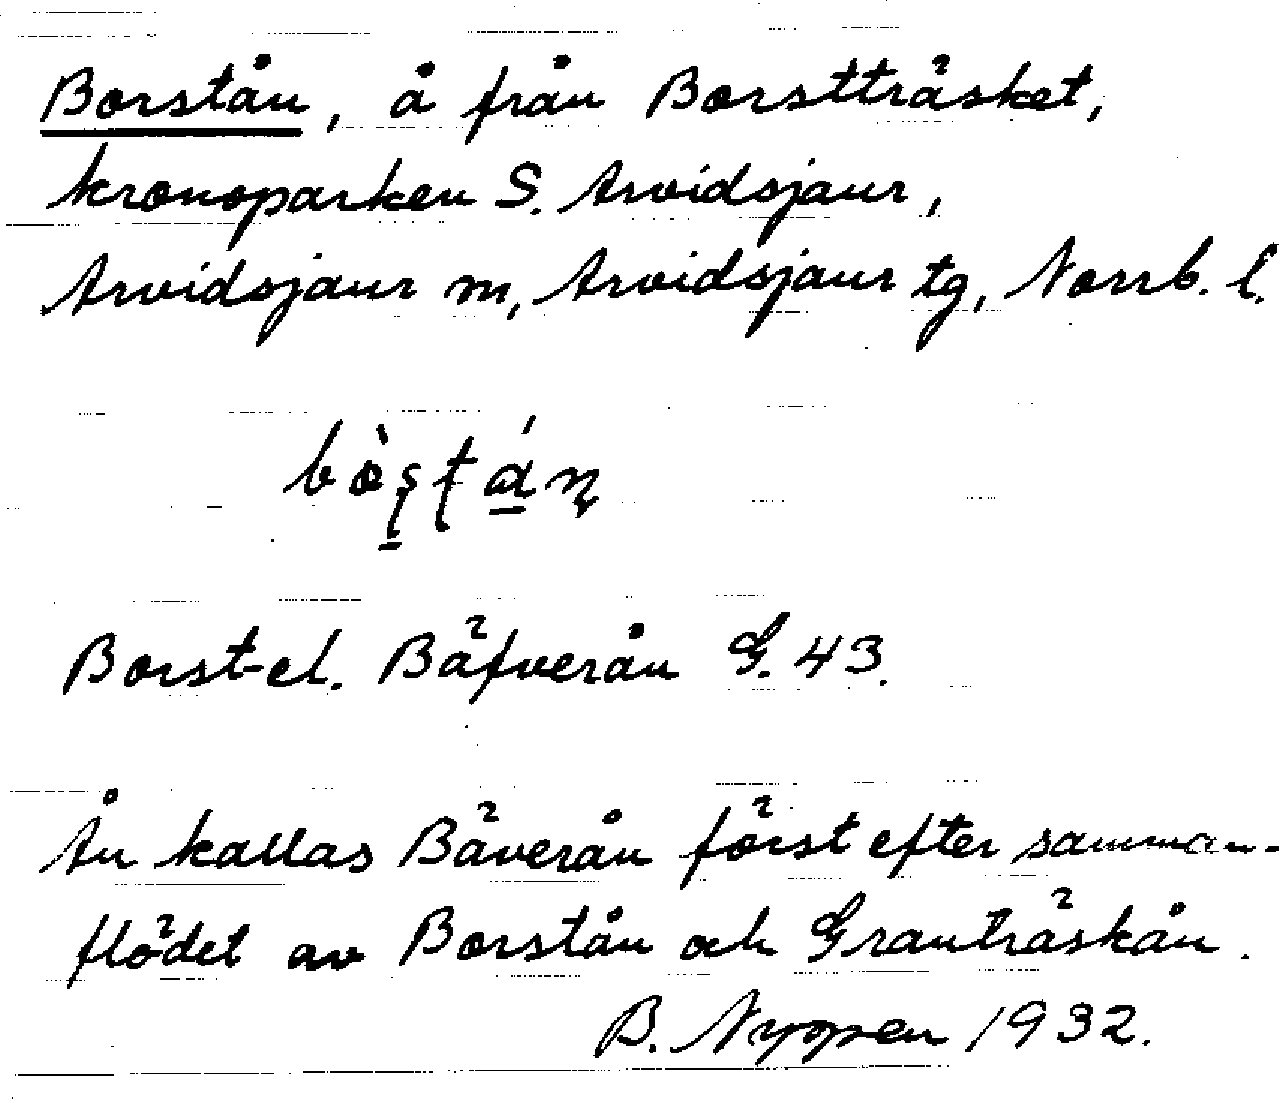 Borstån, å från Borstträsket,
kronoparken S. Arvidsjaur,
Arvidsjaur m, Arvidsjaur tg, Norrb. l.
Borst- el. Bäfverån G. 43.
Ån kallas Bäverån först efter samman-
flödet av Borstån och Granträskån.
B. Nyopen 1932.